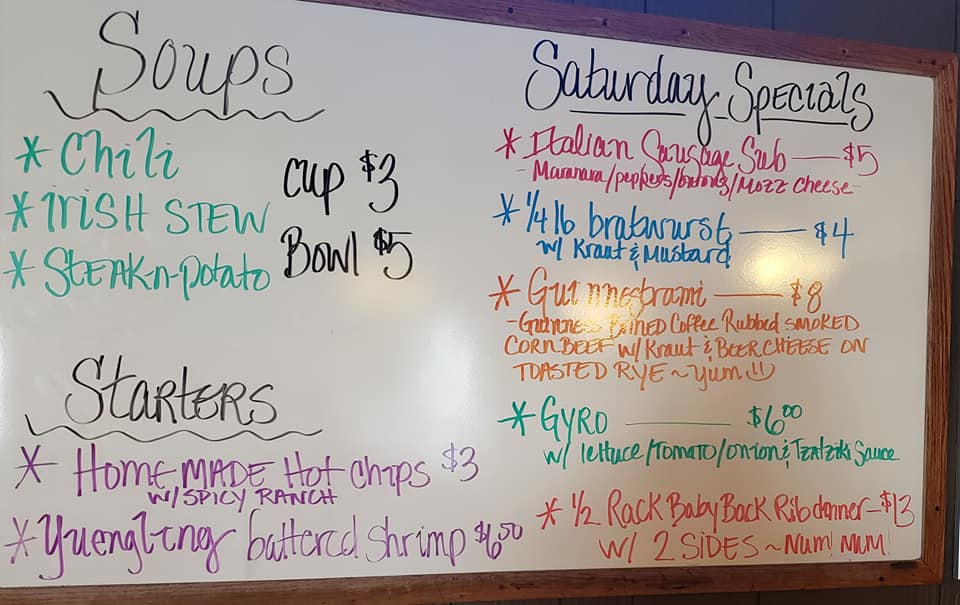 Soups
* Chili
* IRISH STEW
* STEAK-n-Potato
Cup $3
Bowl $5
Starters
* HomeMADE Hot Chips $3
w/ SPICY RANCH
* Yuengling battered shrimp $6.00
Saturday Specials
* Italian Sausage Sub — $5
- Maranara/peppers/onions/Mozz Cheese -
* 1/4 lb bratwurst — $4
w/ Kraut & Mustard
* Guinnestrami — $8
- Guinness Brined Coffee Rubbed SMOKED
CORN BEEF w/ Kraut & BEER CHEESE ON
TOASTED RYE ~ Yum
* GYRO — $6.00
w/ lettuce/Tomato/onion & Tzatziki Sauce
* 1/2 Rack Baby Back Rib dinner - $13
w/ 2 SIDES ~ Num! Num!